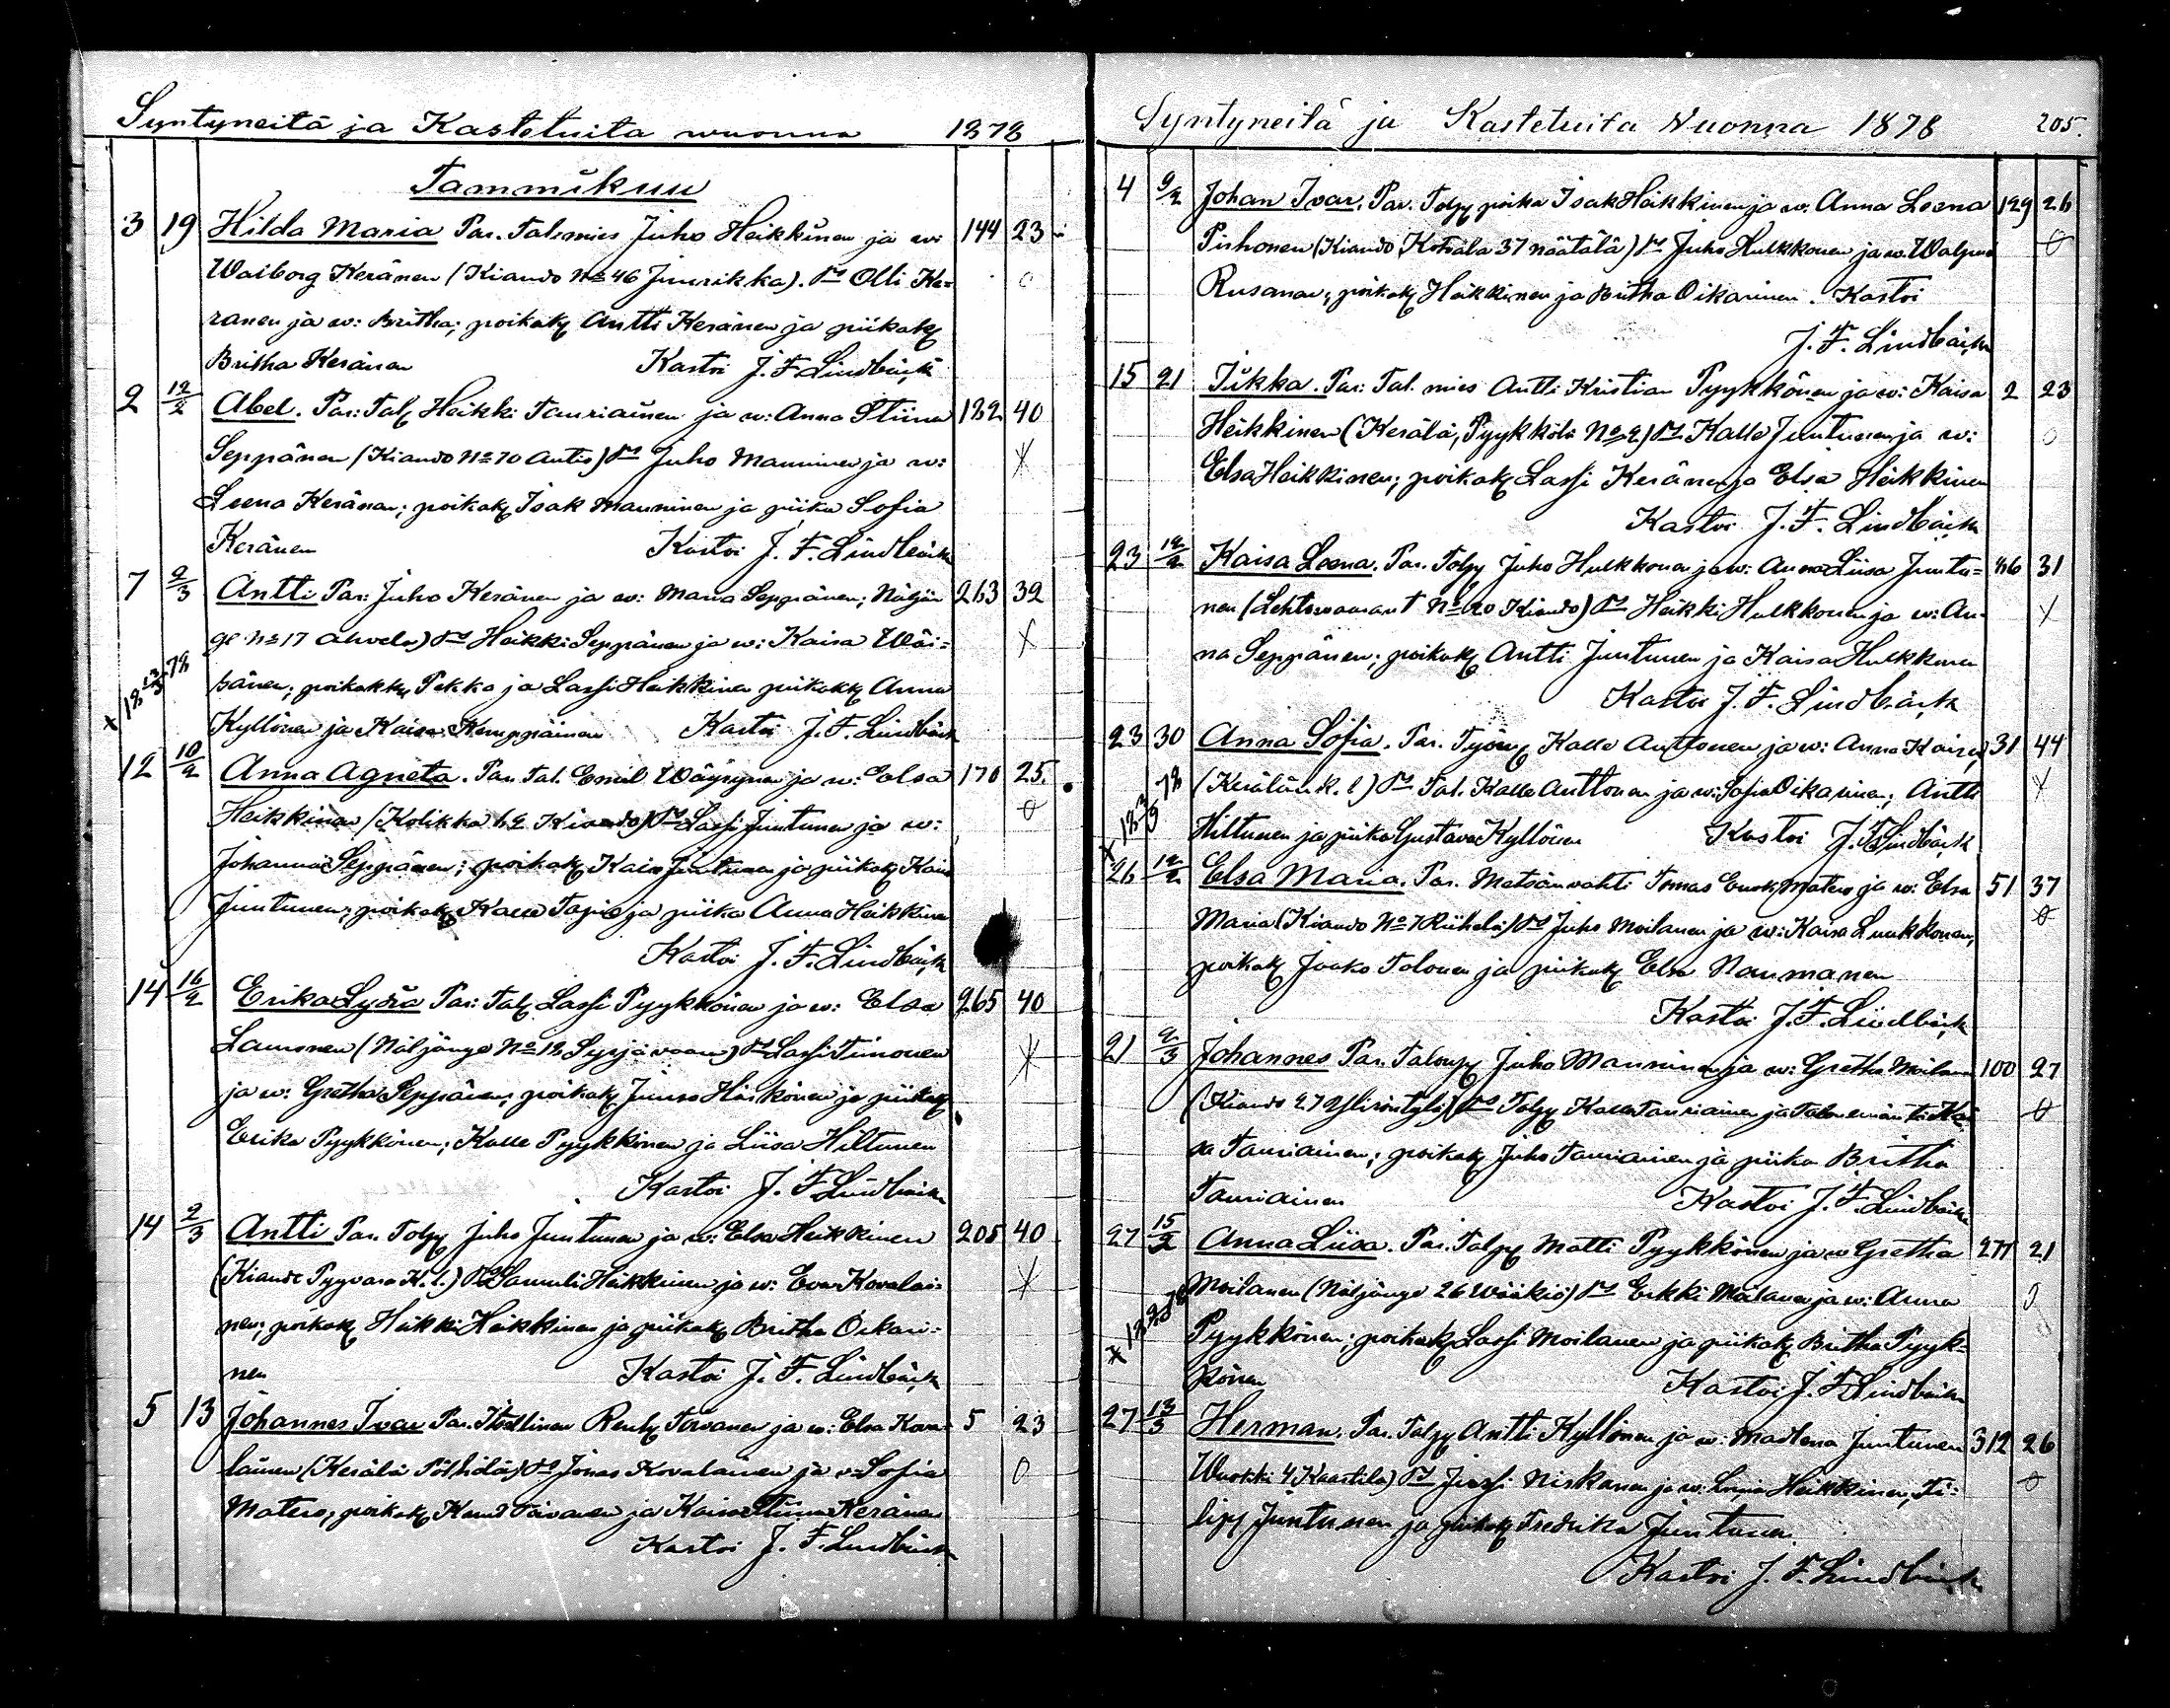 Syntyneitä ja Kastetuita wuonna 1878
Tammikuu
3 19 Hilda Maria Par. Talomies Juho Heikkinen ja w: 144 23
Walborg Keränen (Kiando No 46 Juurikka). Olli Ke=
ränen ja w: Britha; poikak Antti Keränen ja piikak
Britha Keränen Kastoi J. F. Lindbäck
2 12/2 Abel. Par: Tal Heikki Tauriainen ja w: Anna Stiina 182 40
Seppänen (Kiando No 70 Antio) Juho Manninen ja w:
Leena Keränen; poikak Isak Manninen ja piika Sofia
Keränen Kastoi J. F. Lindbäck
7 2/3 Antti Par: Juho Keränen ja w: Maria Seppänen; Näljän 263 32
ge No 17 Ahvela) Heikki Seppänen ja w: Kaisa Wäi=
sänen; poikakk Pekka ja Lassi Heikkinen piikakk Anna
Kyllönen ja Kaisa Kemppäinen Kastoi J. F. Lindbäck
12 10/2 Anna Agneta. Par. Tal. Emil Wäyrynen ja w: Elsa 170 25.
Heikkinen (Kolikka Kiando) Lassi Juntunen ja w:
Johanna Seppänen; poikak Juntunen ja piikak Kaisa
Juntunen; poikak Kalle Tapio ja piika Anna Heikkinen
Kastoi J. F. Lindbäck
14 16/2 Erika Lydia Par: Tal Lassi Pyykkönen ja w: Elsa 265 40
Lauronen (Näljänge No 12 Syrjävaara) Lassi Timonen
ja w: Gretha Seppänen; poikak Juuso Härkönen ja piikak
Erika Pyykkönen; Kalle Pyykkönen ja Liisa Hiltunen
Kastoi J. F. Lindbäck
14 2/3 Antti Par. Talpy Juho Juntunen ja w: Elsa Heikkinen 205 40
(Kiando Pyyvaara K. l.) Samuli Heikkinen ja w: Eva Kovalai=
nen; poikak Heikki Heikkinen ja piikak Britha Oikari=
nen Kastoi J. F. Lindbäck
5 13 Johannes Ivar Par. Itsellinen Renk Torvanen ja w: Elsa Kova= 5 23
lainen (Kerälä Pöllhölä) Jonas Kovalainen ja w: Sofia
Matero; poikak Torvanen ja Kaisa Stiina Keränen
Kastoi J. F. Lindbäck
Syntyneitä ja Kastetuita Wuonna 1878 205.
4 9/2 Johan Ivar. Par. Talpy poika Isak Heikkinen ja w: Anna Leena 129 26
Pirhonen (Kiando Kotvala 37 näätälä) Juho Hulkkonen ja w. Walpuri
Rusanen; poikak Heikkinen ja Britha Oikarinen. Kastoi
J. F. Lindbäck
15 21 Iikka. Par: Tal. mies Antti Kristian Pyykkönen ja w: Kaisa 2 23
Heikkinen (Kerälä, Pyykkölä No 2) Kalle Juntunen ja w:
Elsa Heikkinen; poikak Lassi Keränen ja Elsa Heikkinen
Kastoi J. F. Lindbäck
23 12/2 Kaisa Leena. Par. Talpy Juho Hulkkonen ja w: Anna Liisa Juntu= 31
nen (Lehtovaara No 20 Kiando) Heikki Hulkkonen ja w: An=
na Seppänen; poikak Antti Juntunen ja Kaisa Hulkkonen
Kastoi J. F. Lindbäck
23 30 Anna Sofia. Par. Työm Kalle Anttonen ja w: Anna Kaisa 31 44
(Kerälän k. l) Tal. Kalle Anttonen ja w: Sofia Oikarinen; Antti
Hiltunen ja piika Gustava Kyllönen Kastoi J. F. Lindbäck
26 12/2 Elsa Maria. Par. Metsänvahti Tomas Enok Matero ja w: Elsa 51 37
Maria (Kiando No 7 Riihelä) Juho Moilanen ja w: Kaisa Luukkonen,
poikak Jaako Tolonen ja piikak Elsa Naumanen
Kastoi J. F. Lindbäck
21 2/3 Johannes Par. Talonpy Juho Manninen ja w: Gretha Moilanen 100 27
(Kiando 27 Yliröntylä) Talpy Kalle Tauriainen ja Talon emäntä Kai
sa Tauriainen; poikak Juho Tauriainen ja piika Britha
Tauriainen Kastoi J. F. Lindbäck
27 15/2 Anna Liisa. Par. Talpy Matti Pyykkönen ja w Gretha 277 21
Moilanen (Näljänge 26 Wääkiö) Erkki Moilanen ja w: Anna
Pyykkönen; poikak Lassi Moilanen ja piikak Britha Pyyk=
könen Kastoi J. F. Lindbäck
27 13/3 Herman. Par. Talpy Antti Kyllönen ja w: Madlena Juntunen 312 26
Wuokki 4 Kaartila) Jussi Niskanen ja w: Heikkinen, Fi=
lipp Juntunen ja piikak Fredrika Juntunen
Kastoi J. F. Lindbäck